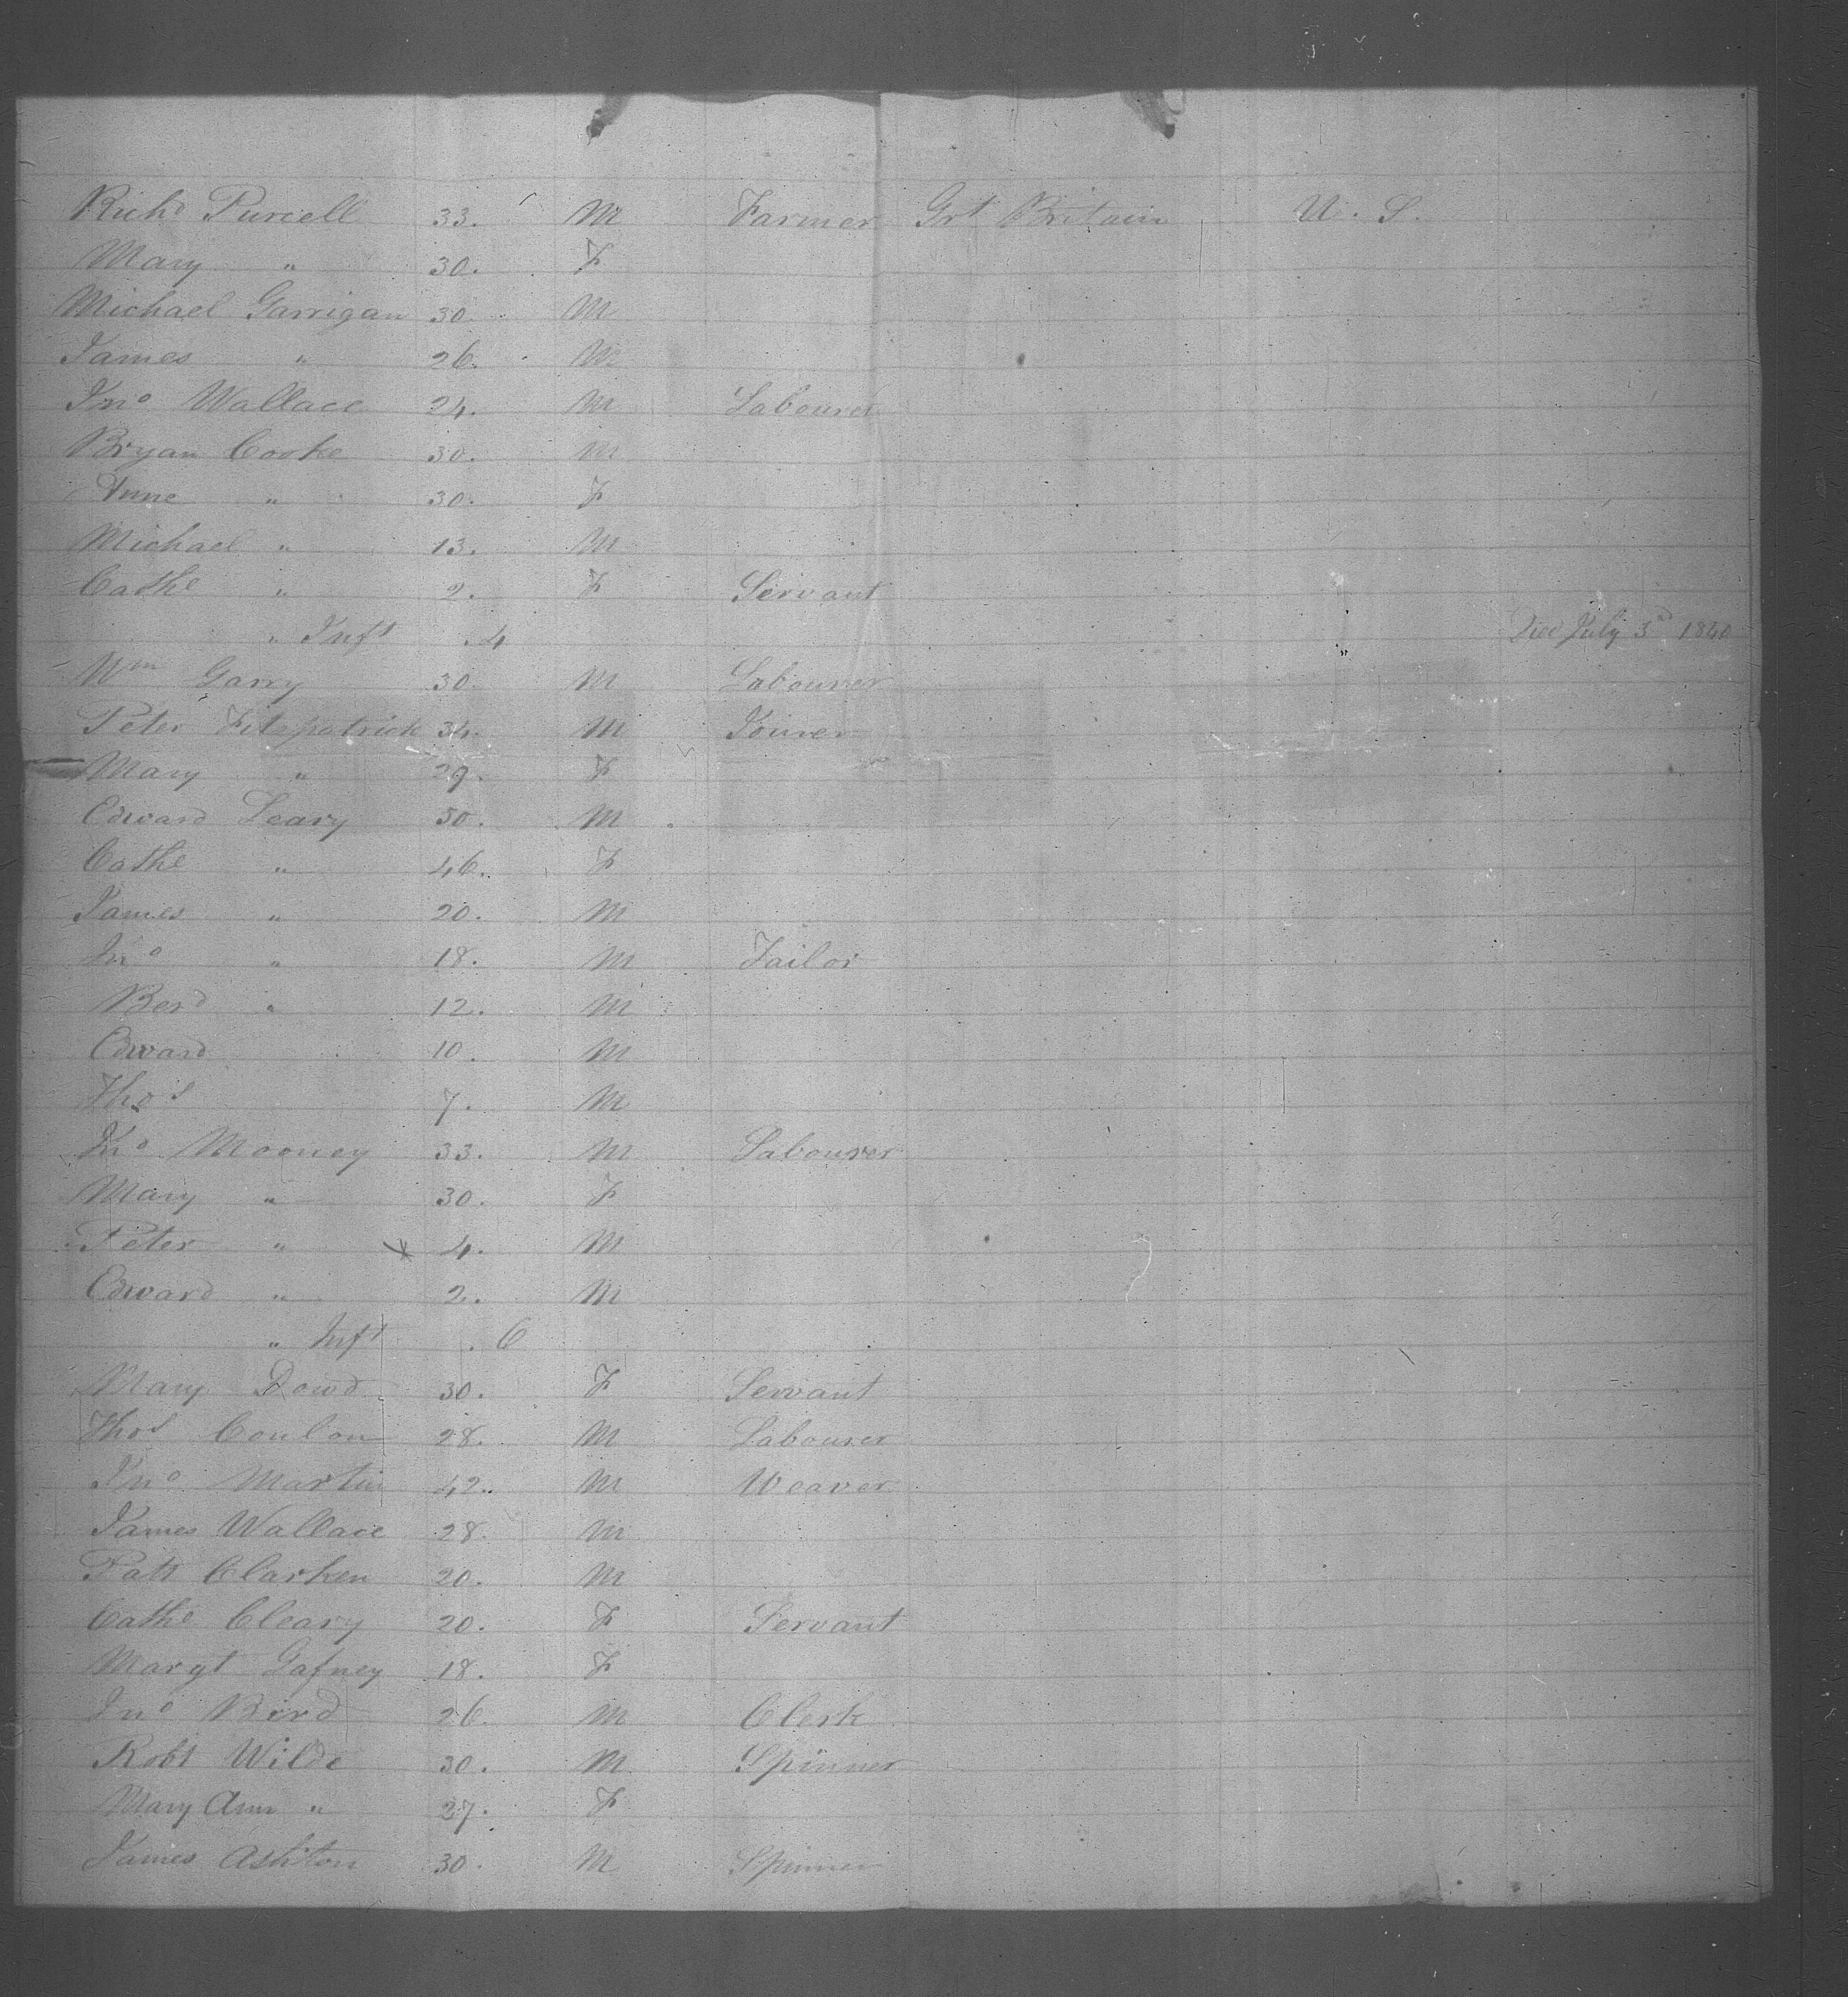 Richd Purcell 33. M Farmer Grt Britain U. S.
Mary " 30. F
Michael Garrigan 30. M
James " 26. M
Jno Wallace 24. M Labourer
Bryan Cooke 30. M
Anne " 30. F
Michael " 13. M
Cathe " 2. F Servant
" Inft .4 Died July 3rd 1840
Wm Garry 30. M Labourer
Peter Fitzpatrick 34. M Joiner
Mary " 29. F
Edward Leary 50. M
Cathe " 46. F
James " 20. M
Jno " 18. M Tailor
Berd " 12. M
Edward 10. M
Thos 7. M
Jno Mooney 33. M Labourer
Mary " 30. F
Peter " 4. M
Edward " 2. M
" Inft .6
Mary Dowd 30. F Servant
Thos Conlon 28. M Labourer
Jno Martin 42. M Weaver
James Wallace 28. M
Patt Clarken 20. M
Cathe Cleary 20. F Servant
Margt Gafney 18. F
Jno Bird 26. M Clerk
Robt Wilde 30. M Spinner
Mary Ann " 27. F
James Ashton 30. M Spinner